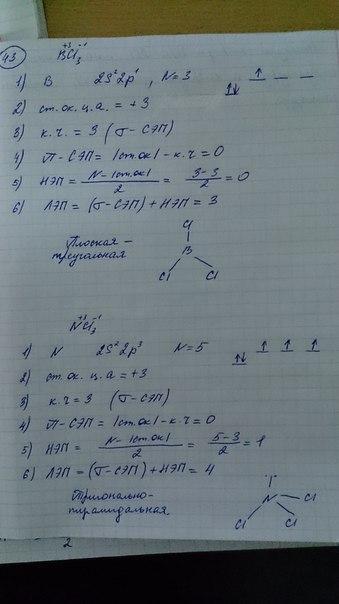 43
+3 -1
BCl₃
1) B 2S² 2p¹, N=3 ↑↓ ↑ _ _
2) ст. ок. ц. а = +3
3) к. ч. = 3 (σ-СЭП)
4) π-СЭП = |ст. ок| - к. ч = 0
5) НЭП = N-|ст. ок|/2 = 3-3/2 = 0
6) ЛЭП = (σ-СЭП) + НЭП = 3
Плоская-
треугольная
Cl
B
Cl Cl
+3 -1
NCl₃
1) N 2S² 2p³ N=5 ↑↓ ↑ ↑ ↑
2) ст. ок. ц. а = +3
3) к. ч = 3 (σ-СЭП)
4) π-СЭП = |ст. ок| - к. ч = 0
5) НЭП = N-|ст. ок|/2 = 5-3/2 = 1
6) ЛЭП = (σ-СЭП) + НЭП = 4
Тригонально-
пирамидальная
N Cl
Cl Cl
2